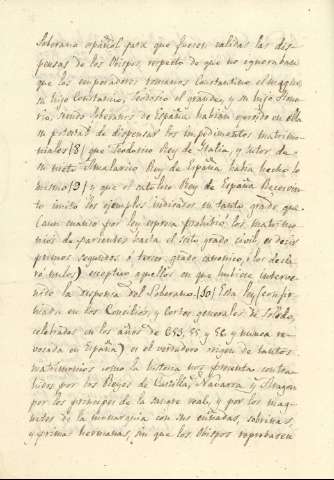 Soberano español para que fuesen validas las dis-
pensas de los Obispos, respecto de que no ignoraban
que los emperadores romanos Constantino el magno,
su hijo Constancio, Teodosio el grande, y su hijo Hono-
rio, siendo soberanos de España habian ejercido en ella
su potestad de dispensar los impedimentos matrimo-
niales (8) que Teodorico Rey de Italia, y tutor de
su nieto Amalarico Rey de España habia hecho lo
mismo (9) y que el catolico Rey de España Recesvin-
to imitó los ejemplos indicados en tanto grado que
(aun cuando por ley espresa prohibió los matrimo-
nios de parientes hasta el sexto grado civil, es decir
primos segundos, ó tercer grado canonico, i los decla-
ró nulos) exceptuó aquellos en que hubiese interve-
nido la dispensa del Soberano. (10) Esta ley (confir-
mada en los Concilios, y Cortes generales de Toledo,
celebrados en los años de 653, 55, y 56 y nunca re-
vocada en España) es el verdadero origen de tantos
matrimonios como la historia nos presenta contra-
hidos por los Reyes de Castilla, Navarra y Aragon
por los principes de la sangre real, y por los mag-
nates de la monarquia con sus cuñadas, sobrinas,
y primas hermanas, sin que los Obispos reprobasen